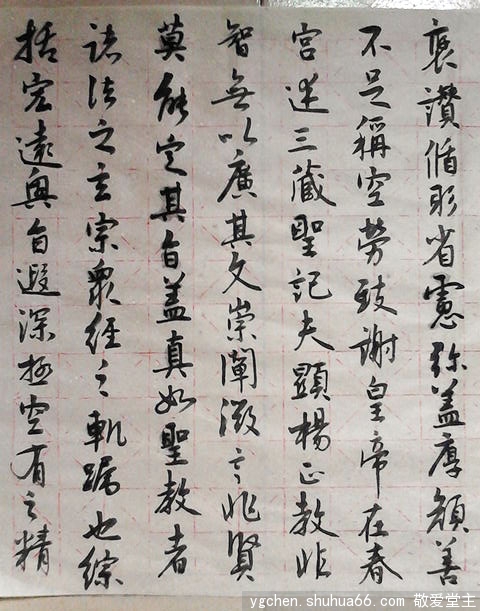 褒讚循躬省慮弥益厚顏善
不足稱空勞致謝皇帝在春
宮述三藏聖記夫顯揚正教非
智無以廣其文崇闡微言非賢
莫能定其旨盖真如聖教者
諸法之玄宗衆經之軌躅也綜
括宏遠奧旨遐深極空有之精
ygchen.shuhua66.com 敬爱堂主